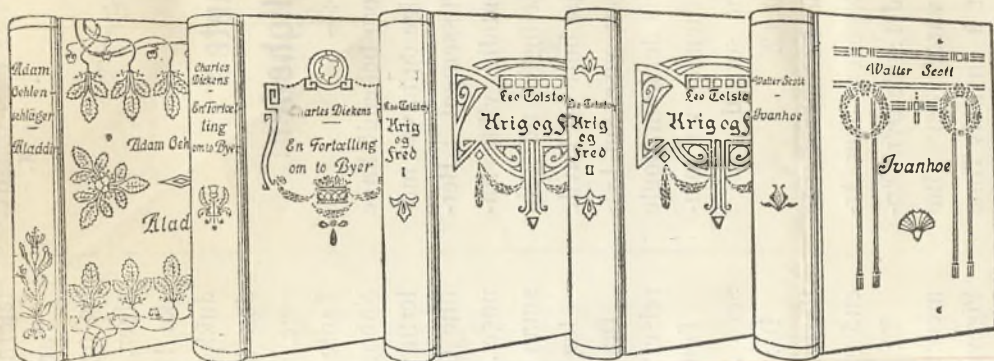 Adam
Oehlen-
schläger
Aladdin
Adam Oeh
Alad
Charles
Dickens
En Fortæl
ling
om to Byer
Charles Dickens
En Fortælling
om to Byer
Leo Tolstoy
Krig
og
Fred
I
Leo Tolsto
Krig og F
Leo Tolstoy
Krig
og
Fred
II
Leo Tolsto
Krig og F
Walter Scott
Ivanhoe
Walter Scott
Ivanhoe